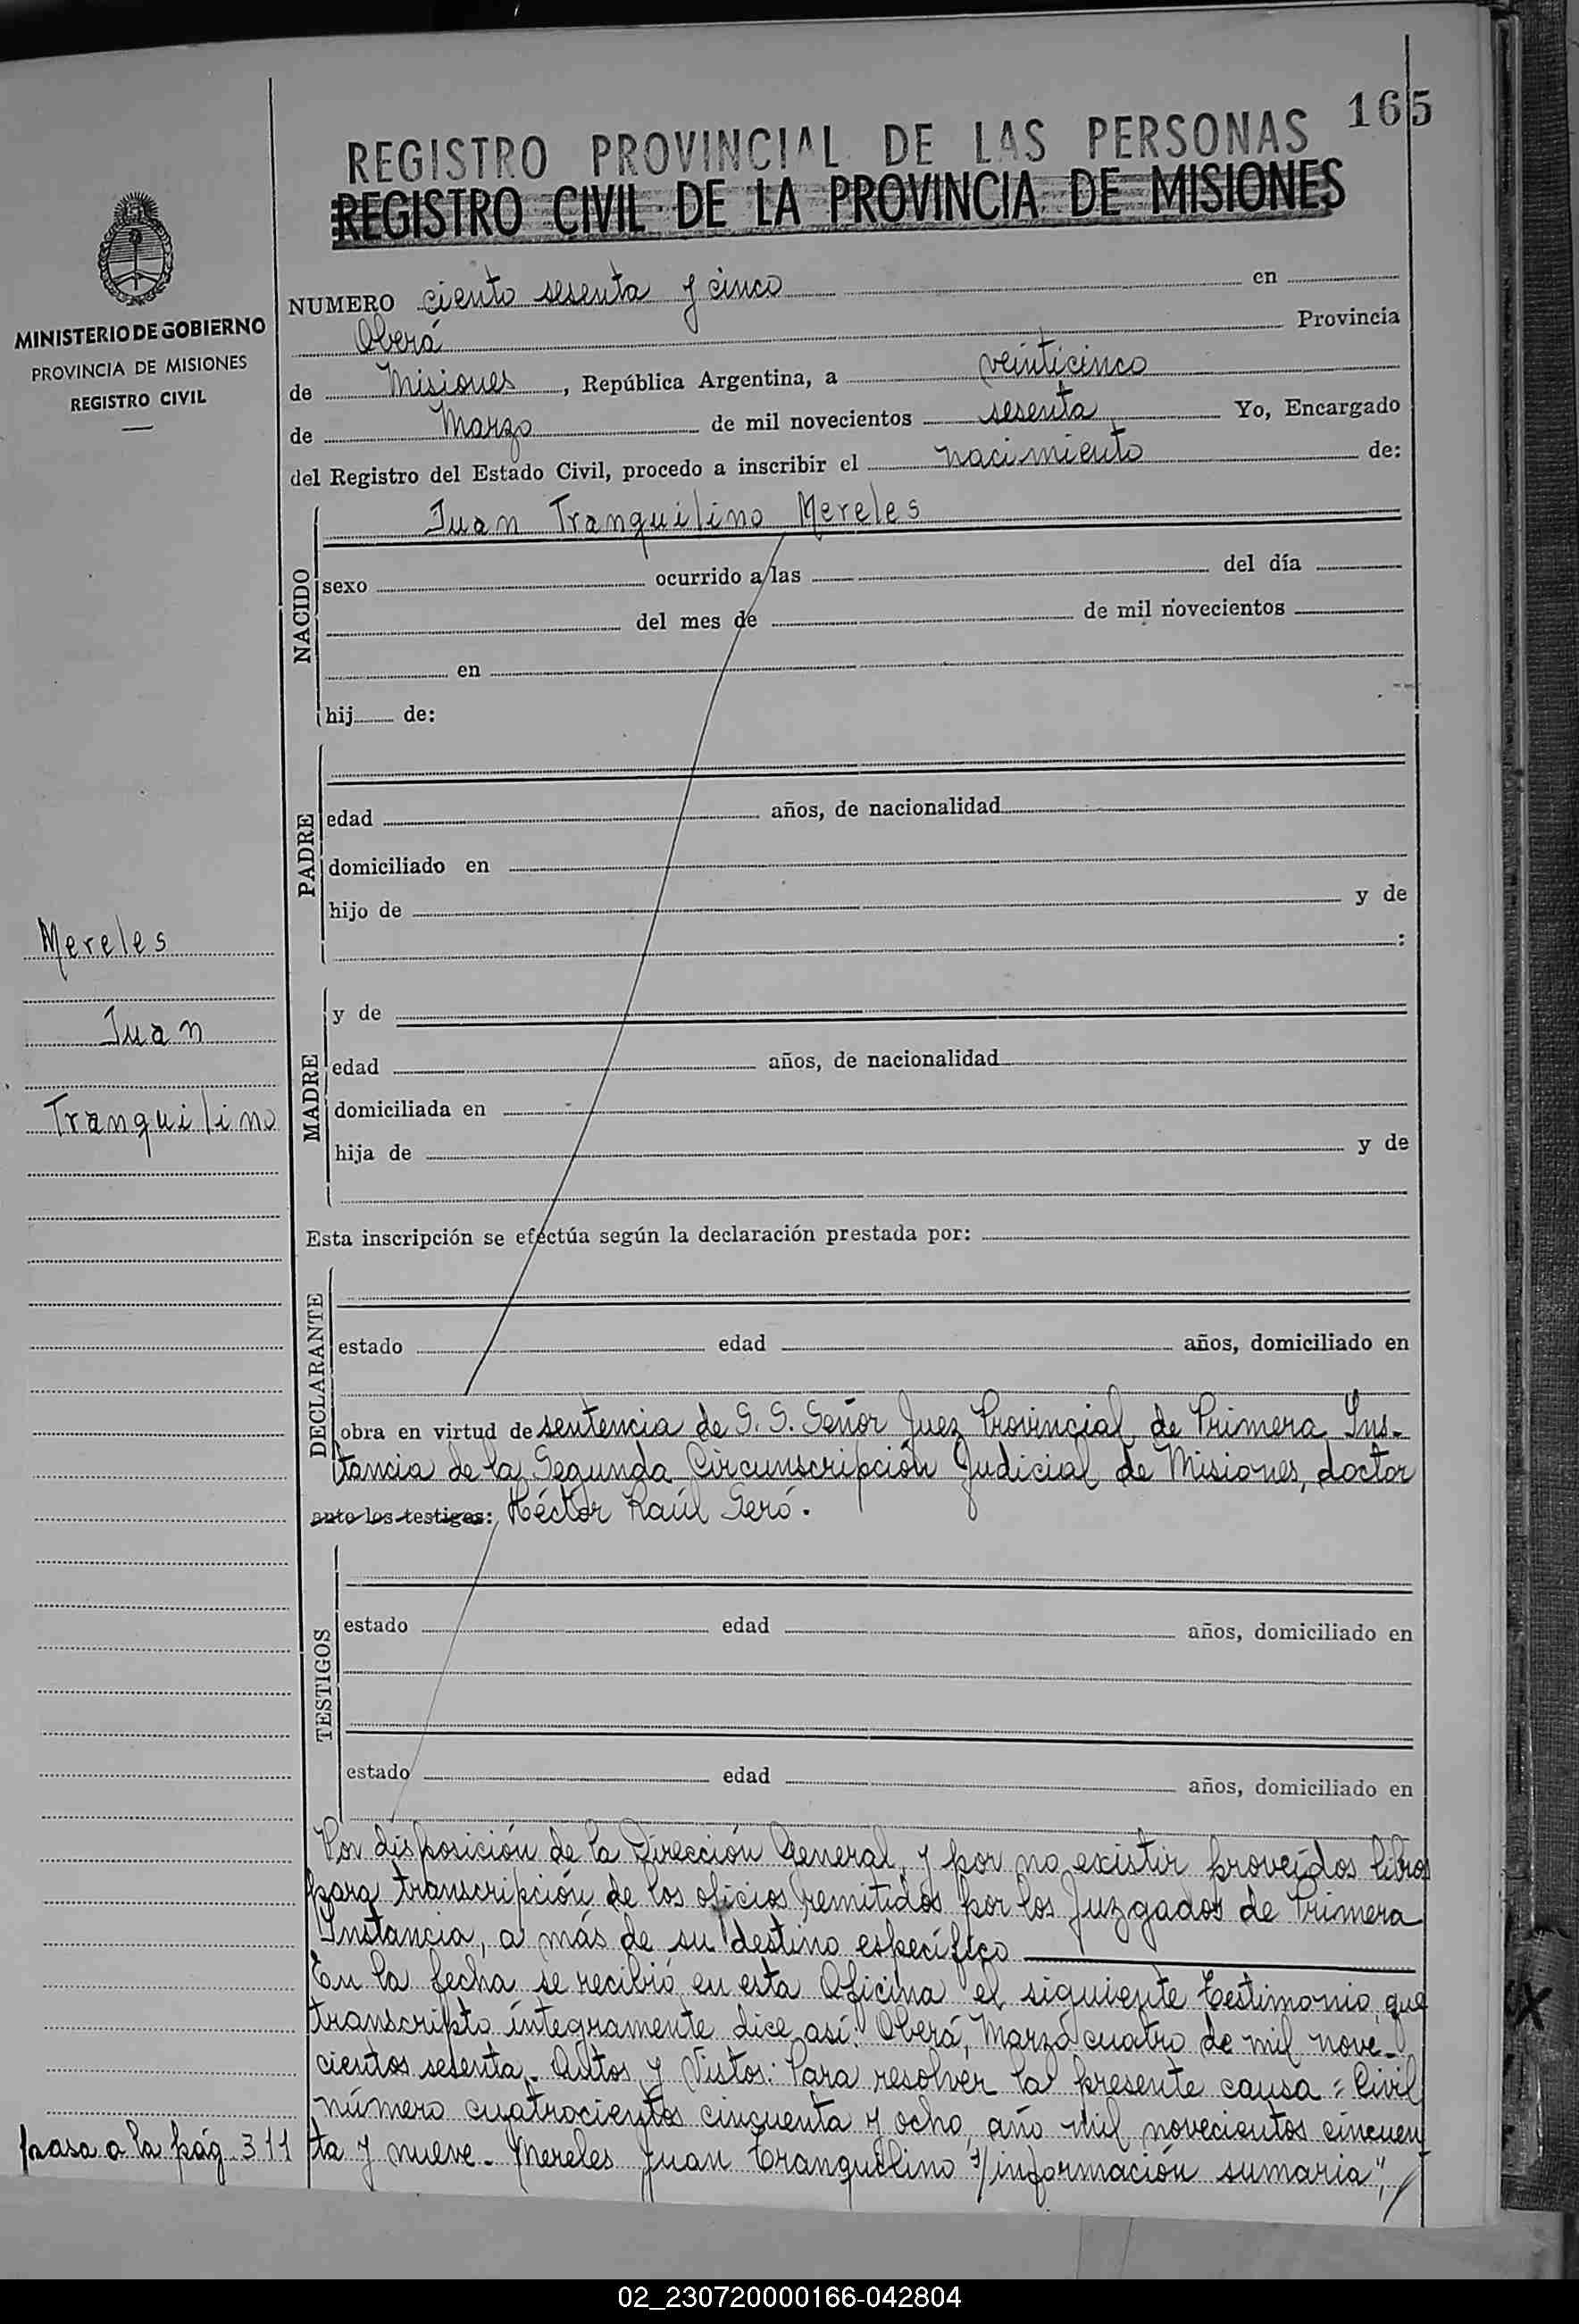 165
REGISTRO PROVINCIAL DE LAS PERSONAS
REGISTRO CIVIL DE LA PROVINCIA DE MISIONES
MINISTERIO DE GOBIERNO
PROVINCIA DE MISIONES
REGISTRO CIVIL
NUMERO ciento sesenta y cinco en
Oberá Provincia
de Misiones, República Argentina, a veinticinco
de Marzo de mil novecientos sesenta Yo, Encargado
del Registro del Estado Civil, procedo a inscribir el nacimiento de:
NACIDO
Juan Tranquilino Mereles
sexo ocurrido a las del día
del mes de de mil novecientos
en
hij de:
PADRE
edad años, de nacionalidad
domiciliado en
hijo de y de
:
Mereles
Juan
Tranquilino
MADRE
y de
edad años, de nacionalidad
domiciliada en
hija de y de
Esta inscripción se efectúa según la declaración prestada por:
DECLARANTE
estado edad años, domiciliado en
obra en virtud de sentencia de S. S. Señor Juez Provincial de Primera Ins-
tancia de la Segunda Circunscripción Judicial de Misiones, doctor
ante los testigos: Héctor Raúl Seró.
TESTIGOS
estado edad años, domiciliado en
estado edad años, domiciliado en
Por disposición de la Dirección General, y por no existir proveídos libros
para transcripción de los oficios remitidos por los Juzgados de Primera
Instancia, a más de su destino específico
En la fecha se recibió en esta Oficina el siguiente testimonio, que
transcripto íntegramente dice así: Oberá, Marzo cuatro de mil nove-
cientos sesenta.- Autos y Vistos: Para resolver la presente causa: Civil
número cuatrocientos cincuenta y ocho, año mil novecientos cincuen
ta y nueve.- Mereles Juan Tranquilino s/información sumaria",
pasa a la pág. 311
02_230720000166-042804